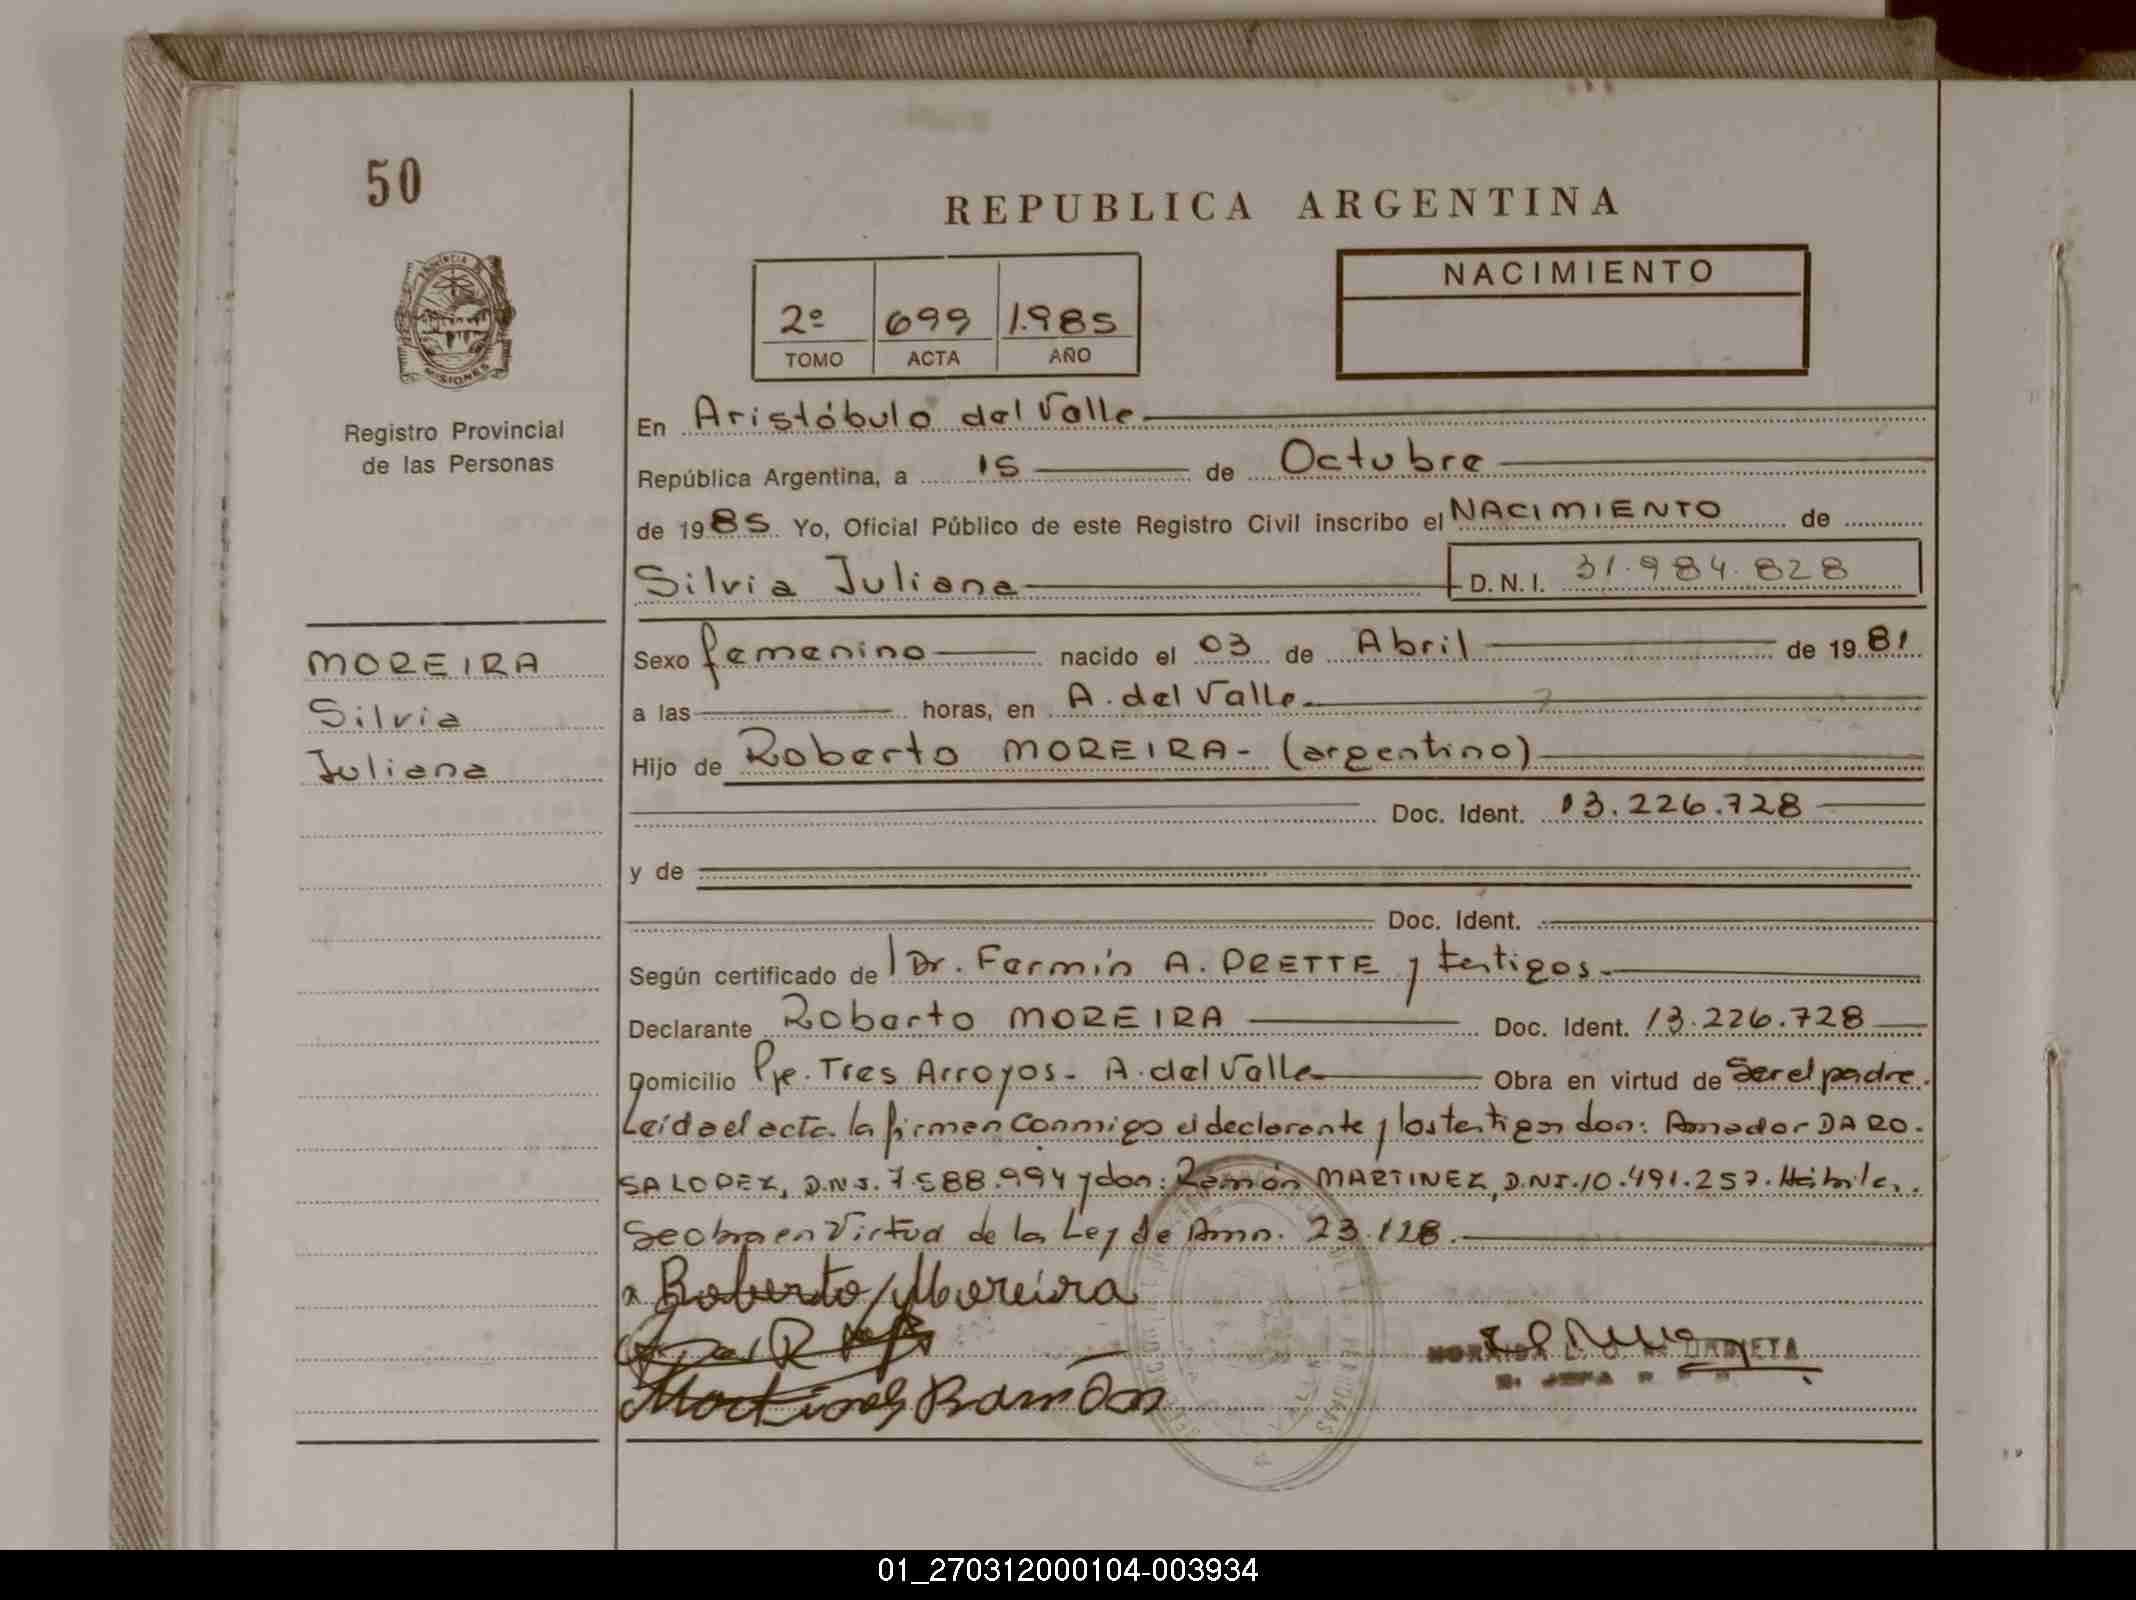 50
REPUBLICA ARGENTINA
PROVINCIA DE MISIONES
Registro Provincial
de las Personas
2º 699 1.985
TOMO ACTA AÑO
NACIMIENTO
En Aristóbulo del Valle
República Argentina, a 15 de Octubre
de 1985 Yo, Oficial Público de este Registro Civil inscribo el NACIMIENTO de
Silvia Juliana D.N.I. 31.984.828
MOREIRA
Silvia
Juliana
Sexo femenino nacido el 03 de Abril de 1981
a las horas, en A. del Valle
Hijo de Roberto MOREIRA - (argentino)
Doc. Ident. 13.226.728
y de
Doc. Ident.
Según certificado de Dr. Fermín A. PRETTE y testigos
Declarante Roberto MOREIRA Doc. Ident. 13.226.728
Domicilio Pje. Tres Arroyos - A. del Valle Obra en virtud de Ser el padre.
Leída el acta la firman conmigo el declarante y los testigos don: Amador DA RO-
SA LOPEZ, D.N.I. 7.588.994 y don: Ramón MARTINEZ, D.N.I. 10.491.257. Hábiles.
Se obra en Virtud de la Ley de Amn. 23.128.
x Roberto Moreira
Martines Ramón
01_270312000104-003934